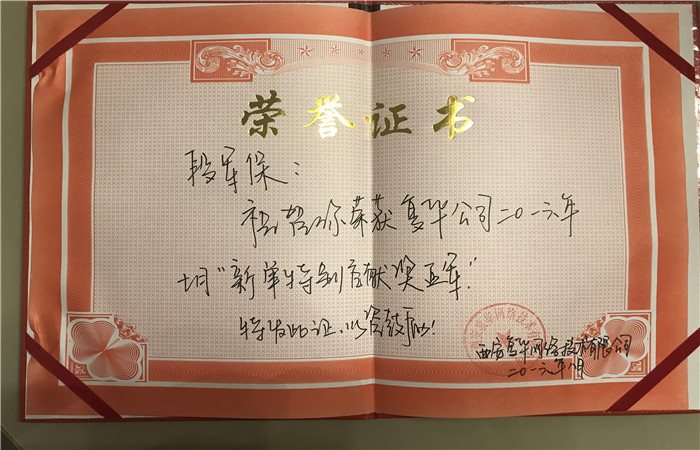 荣誉证书
段军保：
祝贺你荣获复华公司二〇一六年
七月“新单特别贡献奖亚军”
特发此证，以资鼓励！
西安复华网络技术有限公司
二〇一六年八月